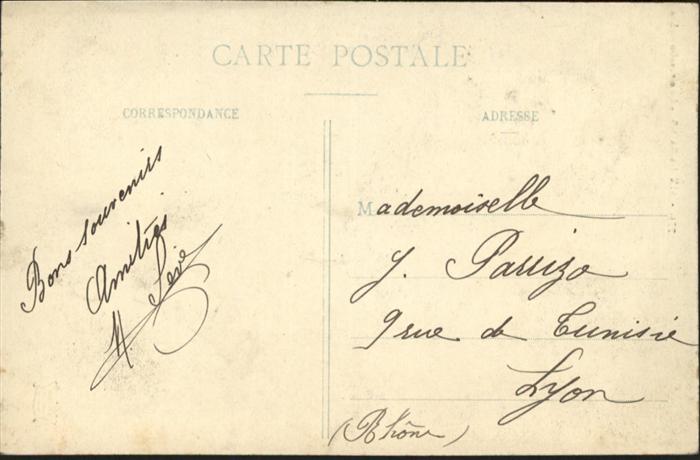 CARTE POSTALE
CORRESPONDANCE
ADRESSE
Bons souvenirs
Amitiés
H.
Mademoiselle
J.
9 rue de Tunisie
Lyon
(Rhône)